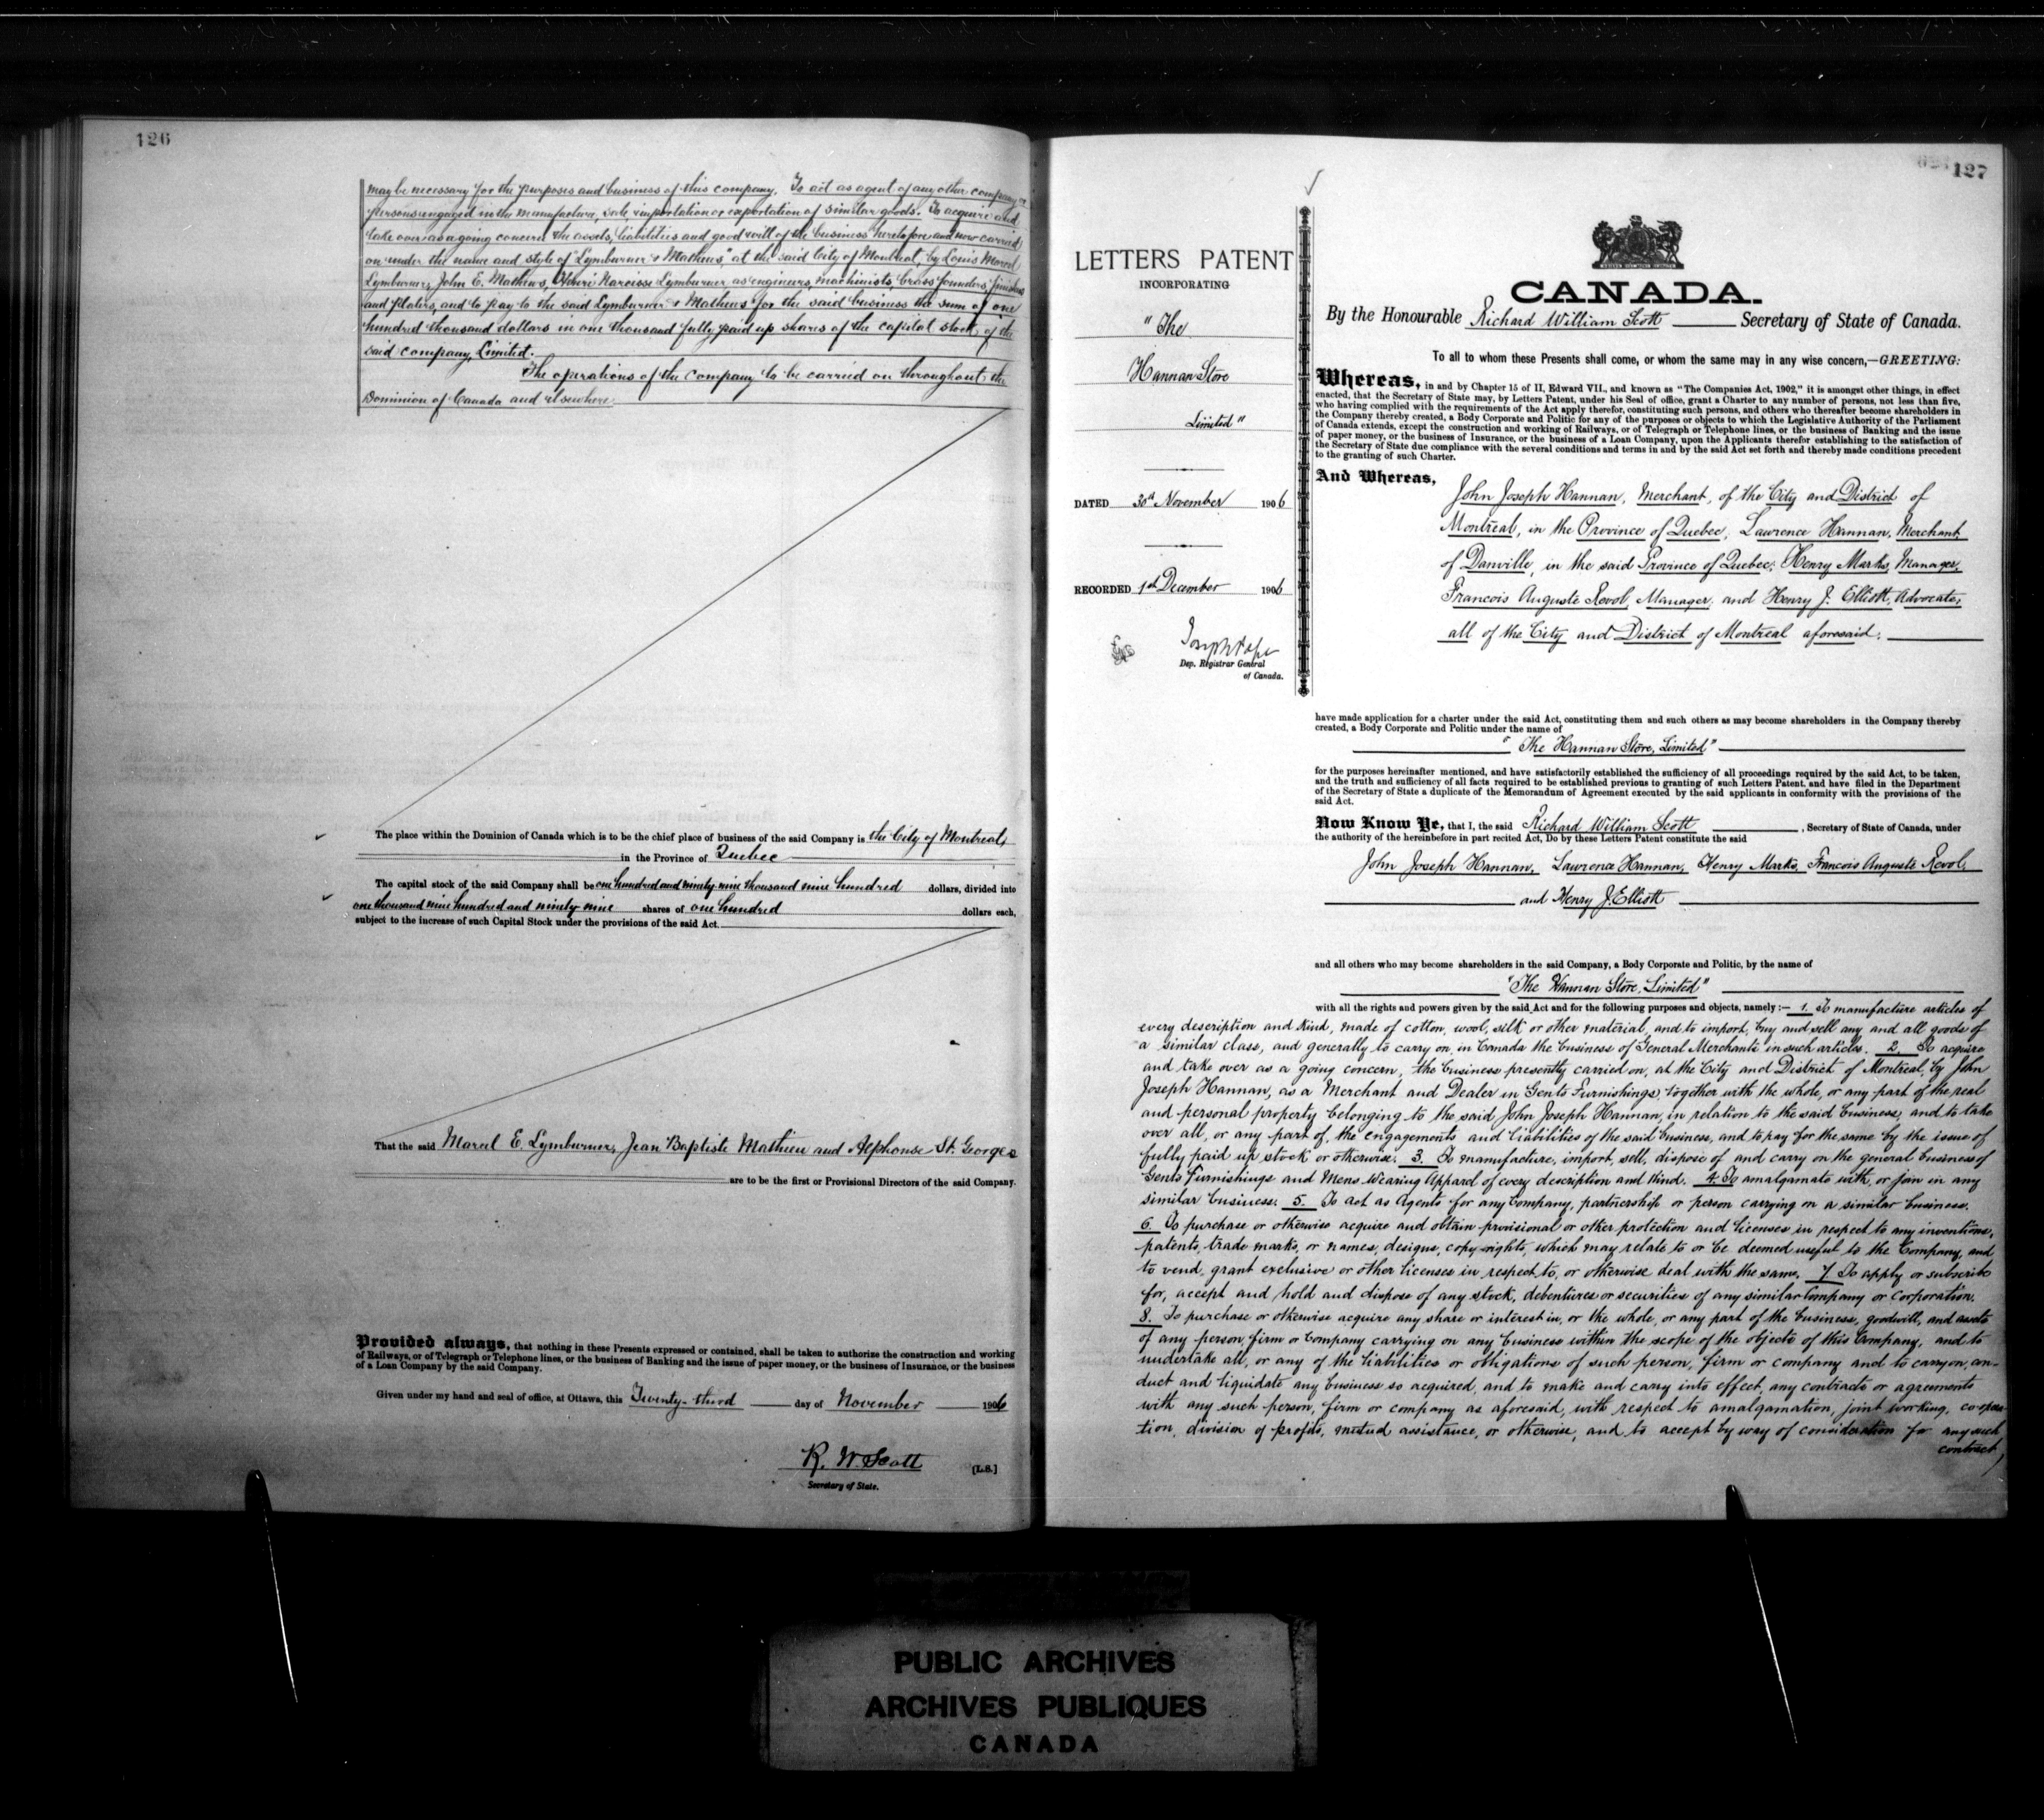 126
may be necessary for the purposes and business of this company. To act as agent of any other company or
persons engaged in the manufacture, sale, importation or exportation of similar goods. To acquire and
take over as a going concern the assets, liabilities and good will of the business heretofore and now carried
on under the name and style of "Lymburner & Mathews," at the said City of Montreal, by Louis Marcel
Lymburner, John E. Mathews, Henri Narcisse Lymburner as engineers, machinists, brass founders, finishers
and platers, and to pay to the said Lymburner & Mathews for the said business the sum of one
hundred thousand dollars in one thousand fully paid up shares of the capital stock of the
said company, Limited.
The operations of the company to be carried on throughout the
Dominion of Canada and elsewhere.
The place within the Dominion of Canada which is to be the chief place of business of the said Company is the City of Montreal,
in the Province of Quebec
The capital stock of the said Company shall be one hundred and ninety-nine thousand nine hundred dollars, divided into
one thousand nine hundred and ninety-nine shares of one hundred dollars each,
subject to the increase of such Capital Stock under the provisions of the said Act.
That the said Marcel E. Lymburner, Jean Baptiste Mathieu and Alphonse St. George
are to be the first or Provisional Directors of the said Company.
Provided always, that nothing in these Presents expressed or contained, shall be taken to authorize the construction and working
of Railways, or of Telegraph or Telephone lines, or the business of Banking and the issue of paper money, or the business of Insurance, or the business
of a Loan Company by the said Company.
Given under my hand and seal of office, at Ottawa, this Twenty-third day of November 1906
R. W. Scott [L.S.]
Secretary of State.
127
LETTERS PATENT
INCORPORATING
"The
Hannan Store
Limited"
DATED 30th November 1906
RECORDED 1st December 1906
Joseph Pope
Dep. Registrar General
of Canada.
CANADA.
By the Honourable Richard William Scott Secretary of State of Canada.
To all to whom these Presents shall come, or whom the same may in any wise concern,—GREETING:
Whereas, in and by Chapter 15 of II, Edward VII., and known as "The Companies Act, 1902," it is amongst other things, in effect
enacted, that the Secretary of State may, by Letters Patent, under his Seal of office, grant a Charter to any number of persons, not less than five,
who having complied with the requirements of the Act apply therefor, constituting such persons, and others who thereafter become shareholders in
the Company thereby created, a Body Corporate and Politic for any of the purposes or objects to which the Legislative Authority of the Parliament
of Canada extends, except the construction and working of Railways, or of Telegraph or Telephone lines, or the business of Banking and the issue
of paper money, or the business of Insurance, or the business of a Loan Company, upon the Applicants therefor establishing to the satisfaction of
the Secretary of State due compliance with the several conditions and terms in and by the said Act set forth and thereby made conditions precedent
to the granting of such Charter.
And Whereas,
John Joseph Hannan, Merchant, of the City and District of
Montreal, in the Province of Quebec; Lawrence Hannan, Merchant,
of Danville, in the said Province of Quebec; Henry Marks, Manager,
Francois Auguste Revol, Manager, and Henry J. Elliott, Advocate,
all of the City and District of Montreal aforesaid,
have made application for a charter under the said Act, constituting them and such others as may become shareholders in the Company thereby
created, a Body Corporate and Politic under the name of
"The Hannan Store, Limited"
for the purposes hereinafter mentioned, and have satisfactorily established the sufficiency of all proceedings required by the said Act, to be taken,
and the truth and sufficiency of all facts required to be established previous to granting of such Letters Patent, and have filed in the Department
of the Secretary of State a duplicate of the Memorandum of Agreement executed by the said applicants in conformity with the provisions of the
said Act.
Now Know Ye, that I, the said Richard William Scott, Secretary of State of Canada, under
the authority of the hereinbefore in part recited Act, Do by these Letters Patent constitute the said
John Joseph Hannan, Lawrence Hannan, Henry Marks, Francois Auguste Revol,
and Henry J. Elliott
and all others who may become shareholders in the said Company, a Body Corporate and Politic, by the name of
"The Hannan Store, Limited"
with all the rights and powers given by the said Act and for the following purposes and objects, namely:— 1. To manufacture articles of
every description and kind, made of cotton, wool, silk or other material, and to import, buy and sell any and all goods of
a similar class, and generally to carry on, in Canada the business of General Merchants in such articles. 2. To acquire
and take over as a going concern, the business presently carried on, at the City and District of Montreal, by John
Joseph Hannan, as a Merchant and Dealer in Gents Furnishings, together with the whole, or any part of the real
and personal property belonging to the said John Joseph Hannan, in relation to the said business, and to take
over all, or any part of, the engagements and liabilities of the said business, and to pay for the same by the issue of
fully paid up stock or otherwise. 3. To manufacture, import, sell, dispose of and carry on the general business of
Gents Furnishings and Mens Wearing Apparel of every description and kind. 4. To amalgamate with, or join in any
similar business. 5. To act as Agents for any Company, partnership or person carrying on a similar business.
6. To purchase or otherwise acquire and obtain provisional or other protection and licenses in respect to any inventions,
patents, trade marks, or names, designs, copy-rights, which may relate to or be deemed useful to the Company, and
to vend, grant exclusive or other licenses in respect to, or otherwise deal with the same. 7. To apply or subscribe
for, accept and hold and dispose of any stock, debentures or securities of any similar Company or Corporation.
8. To purchase or otherwise acquire any share or interest in, or the whole, or any part of the business, goodwill, and assets
of any person, firm or Company carrying on any business within the scope of the objects of this Company, and to
undertake all, or any of the liabilities or obligations of such person, firm or company and to carry on, con-
duct and liquidate any business so acquired, and to make and carry into effect, any contracts or agreements
with any such person, firm or company as aforesaid, with respect to amalgamation, joint working, co-opera-
tion, division of profits, mutual assistance, or otherwise, and to accept by way of consideration for any such
contract,
PUBLIC ARCHIVES
ARCHIVES PUBLIQUES
CANADA